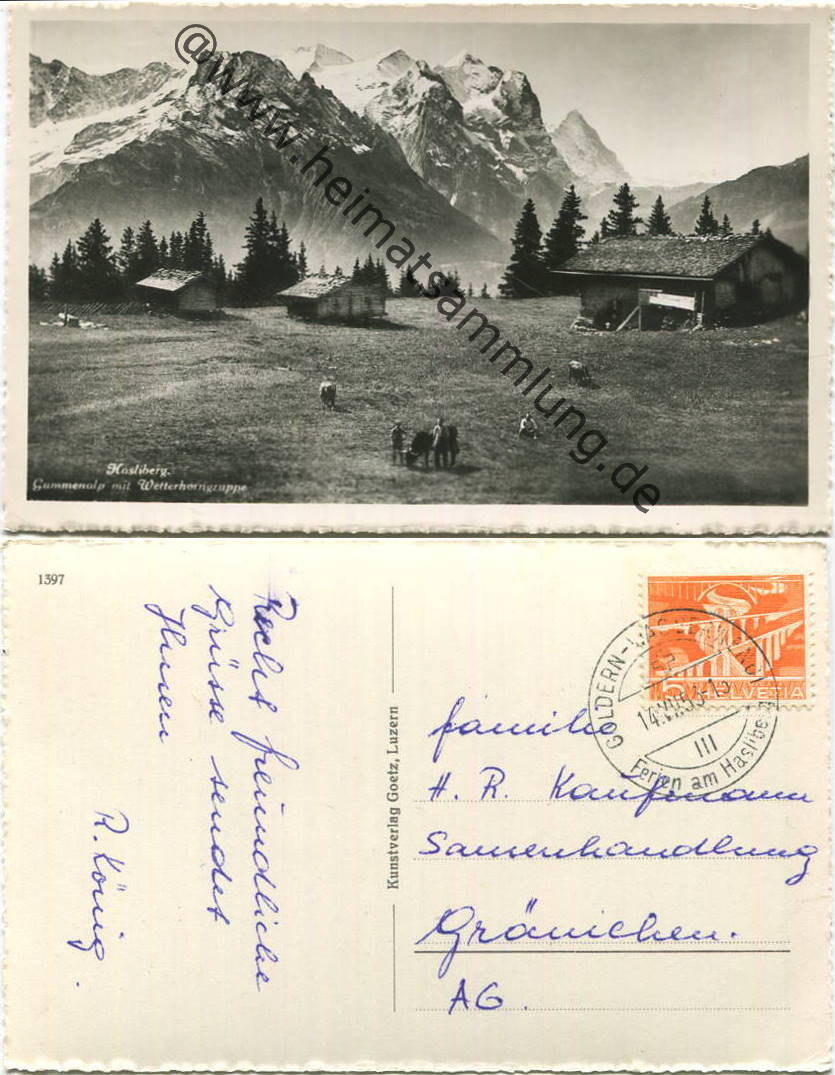 @www.heimatsammlung.de
Hasliberg.
Gummenalp mit Wetterhorngruppe
1397
Recht freundliche
Grüsse sendet
Ihnen
R. König.
Kunstverlag Goetz, Luzern
5 HELVETIA
GOLDERN-
14.VII.53-15
III
Ferien am Hasliberg
familie
H. R. Kaufmann
Samenhandlung
Gränichen.
AG.